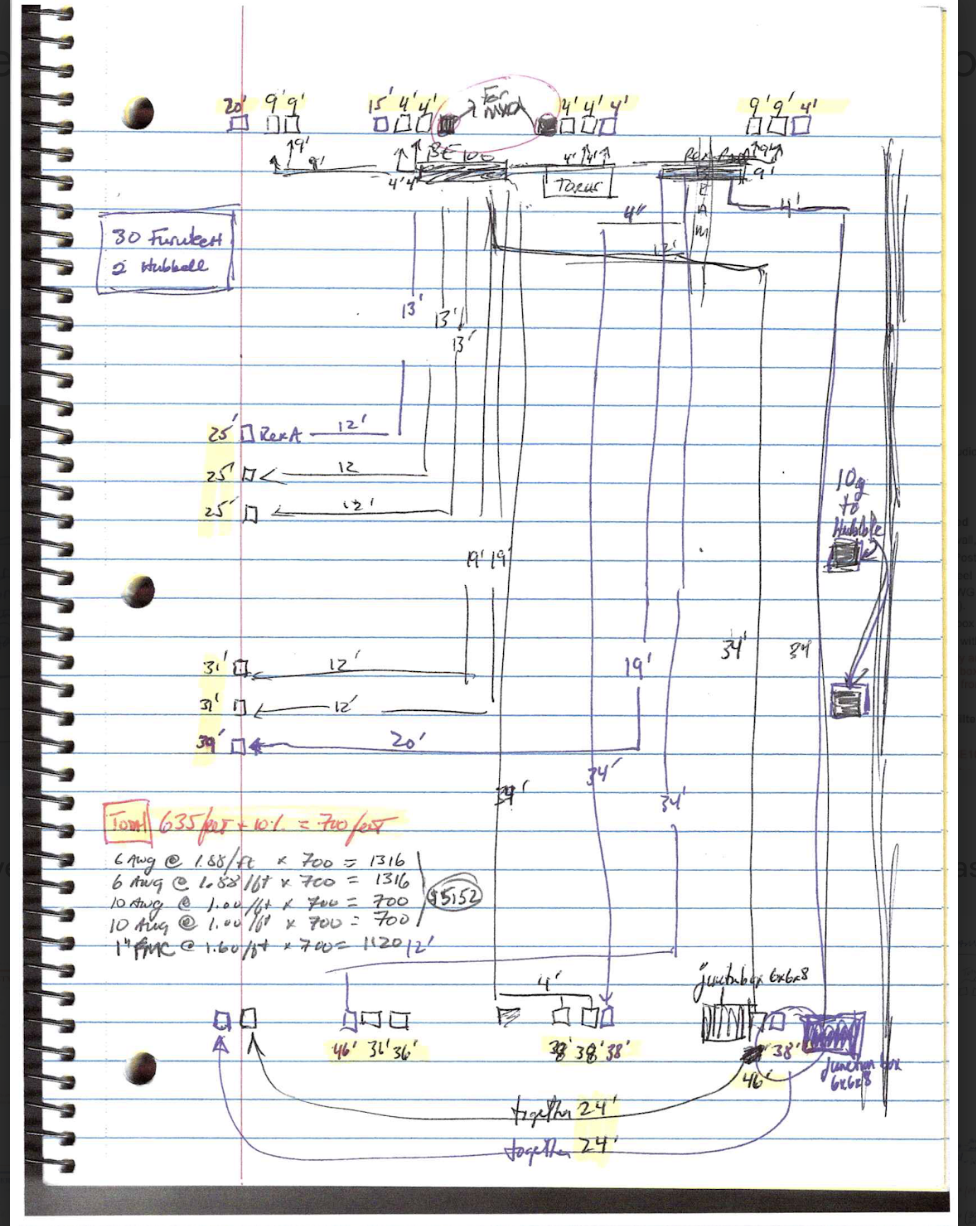 20' 9' 9' 15' 4' 4' For 4' 4' 4' 9' 9' 4'
9' BE 100 4' 4' 9'
9' 4' 4' Torus 9'
BEAM
4" 4'
30
2 Hubbell
12'
13'
13'
13'
25' RexA 12'
25' 12
25' 12'
10g
to
Hubble
19' 19'
31' 12'
31' 12'
39' 20'
19' 34' 34
34' 34' 34'
Total 635/feet + 10% = 700/feet
6 Awg @ 1.88/ft x 700 = 1316
6 Awg @ 1.88/ft x 700 = 1316
10 Awg @ 1.00/ft x 700 = 700
10 Awg @ 1.00/ft x 700 = 700
$5152
1" FMC @ 1.60/ft x 700 = 1120
12'
4' junction box 6x6x8
46' 36' 36' 38' 38' 38' 38'
46' junction box
6x6x8
together 24'
together 24'